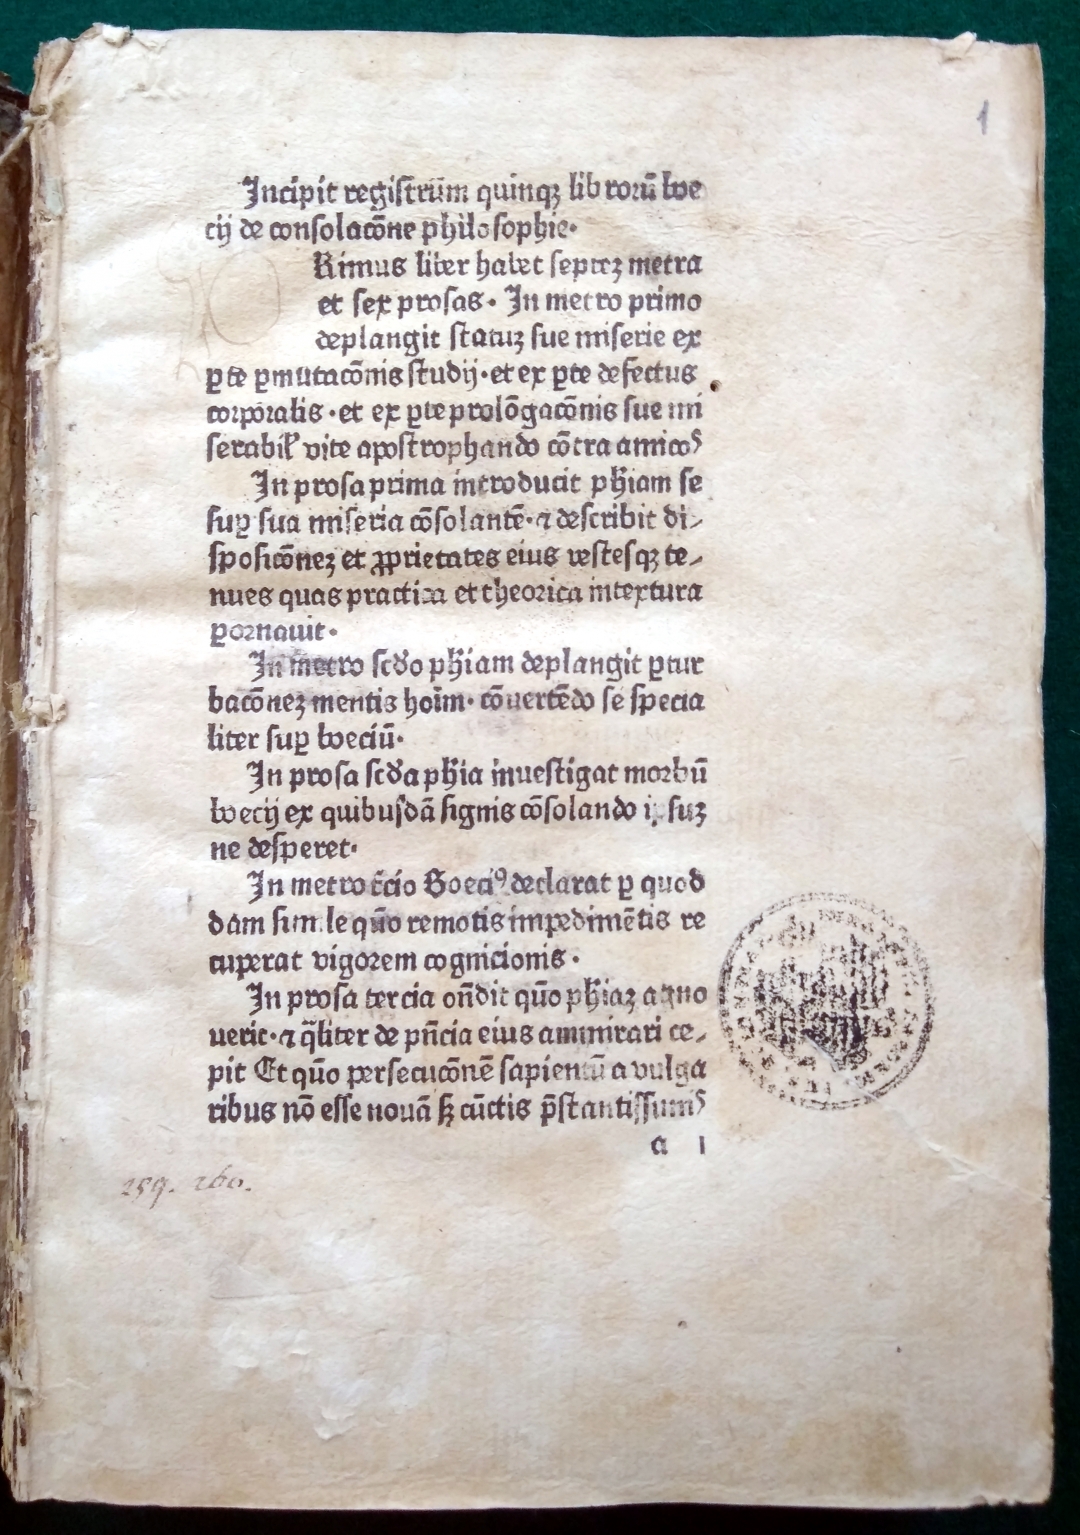 1
Incipit registrū̄m quinqꝫ librorū boe
cij de consolacōne philosophie.
Rimus liber habet septeꝫ metra
et sex prosas. In metro primo
deplangit statuꝫ sue miserie ex
ꝑte ꝑmutacōnis studij. et ex ꝑte defectus
corporalis. et ex ꝑte prolōgacōnis sue mi
serabil̛ vite apostrophando cōtra amicoꝰ
In prosa prima introducit ph̄iam se
suꝑ sua miseria cōsolantē. ⁊ describit di⸗
sposicōneꝫ et ꝓprietates eius vestesqꝫ te⸗
nues quas practica et theorica intextura
ꝑornauit.
In metro scd̄o ph̄iam deplangit ꝑtur
bacōneꝫ mentis hoīm. cōuertēdo se specia
liter suꝑ boeciū.
In prosa scd̄a ph̄ia inuestigat morbū
boecij ex quibusdā signis cōsolando ipsuꝫ
ne desperet.
In metro t̄cio Boeciꝰ declarat ꝑ quod
dam simile quō remotis impedimētis re
cuperat vigorem cognicionis.
In prosa tercia on̄dit quō ph̄iaꝫ agno
uerit. ⁊ q̄liter de pn̄cia eius ammirari ce⸗
pit Et quō persecucōnē sapientū a vulga
ribus nō esse nouā sꝫ cūctis p̄stantissimꝰ
a 1
259. 260.